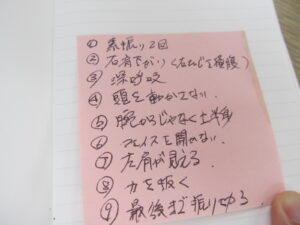 ① 素振り2回
② 右肩下がり（右ひじを
③ 深呼吸
④ 頭を動かさない.
⑤ 腕からじゃなく上半身
⑥ フェイスを開かない.
⑦ 左肩が見える.
⑧ 力を抜く
⑨ 最後まで振りきる.